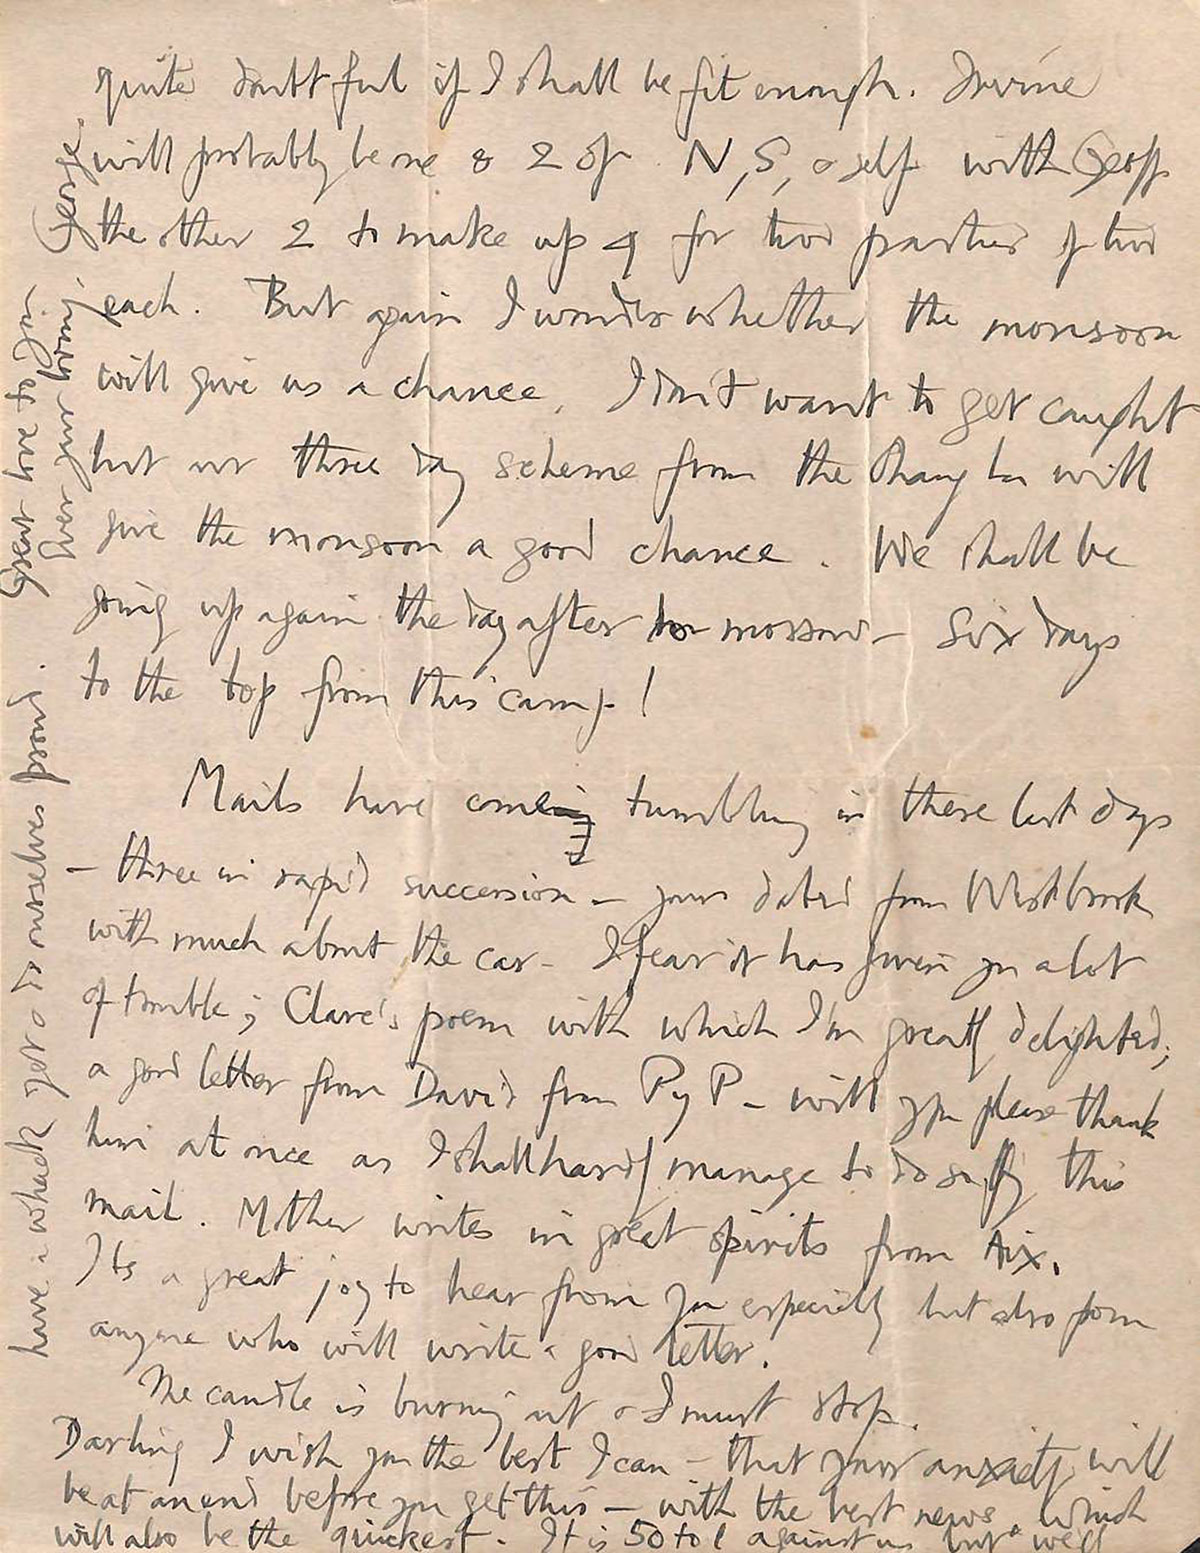 quite doubtful if I shall be fit enough. Irvine
will probably be one & 2 of N, S, & self with Geoff
the other 2 to make up 4 for two parties of two
each. But again I wonder whether the monsoon
will give us a chance. I don't want to get caught
but our three day scheme from the Chang La will
give the monsoon a good chance. We shall be
going up again the day after to-morrow – Six days
to the top from this camp!
Mails have come tumbling in these last days
– three in rapid succession – yours dated from Westbrook
with much about the car – I fear it has given you a lot
of trouble; Clare's poem with which I'm greatly delighted;
a good letter from David from PyP – will you please thank
him at once as I shall hardly manage to do so by this
mail. Mother writes in great spirits from Aix.
Its a great joy to hear from you especially but also from
anyone who will write a good letter.
The candle is burning out & I must stop.
Darling I wish you the best I can – that your anxiety will
be at an end before you get this – with the best news. Which
will also be the quickest. It is 50 to 1 against us but we'll
have a whack yet & do ourselves proud. Great love to you.
Ever your loving George.